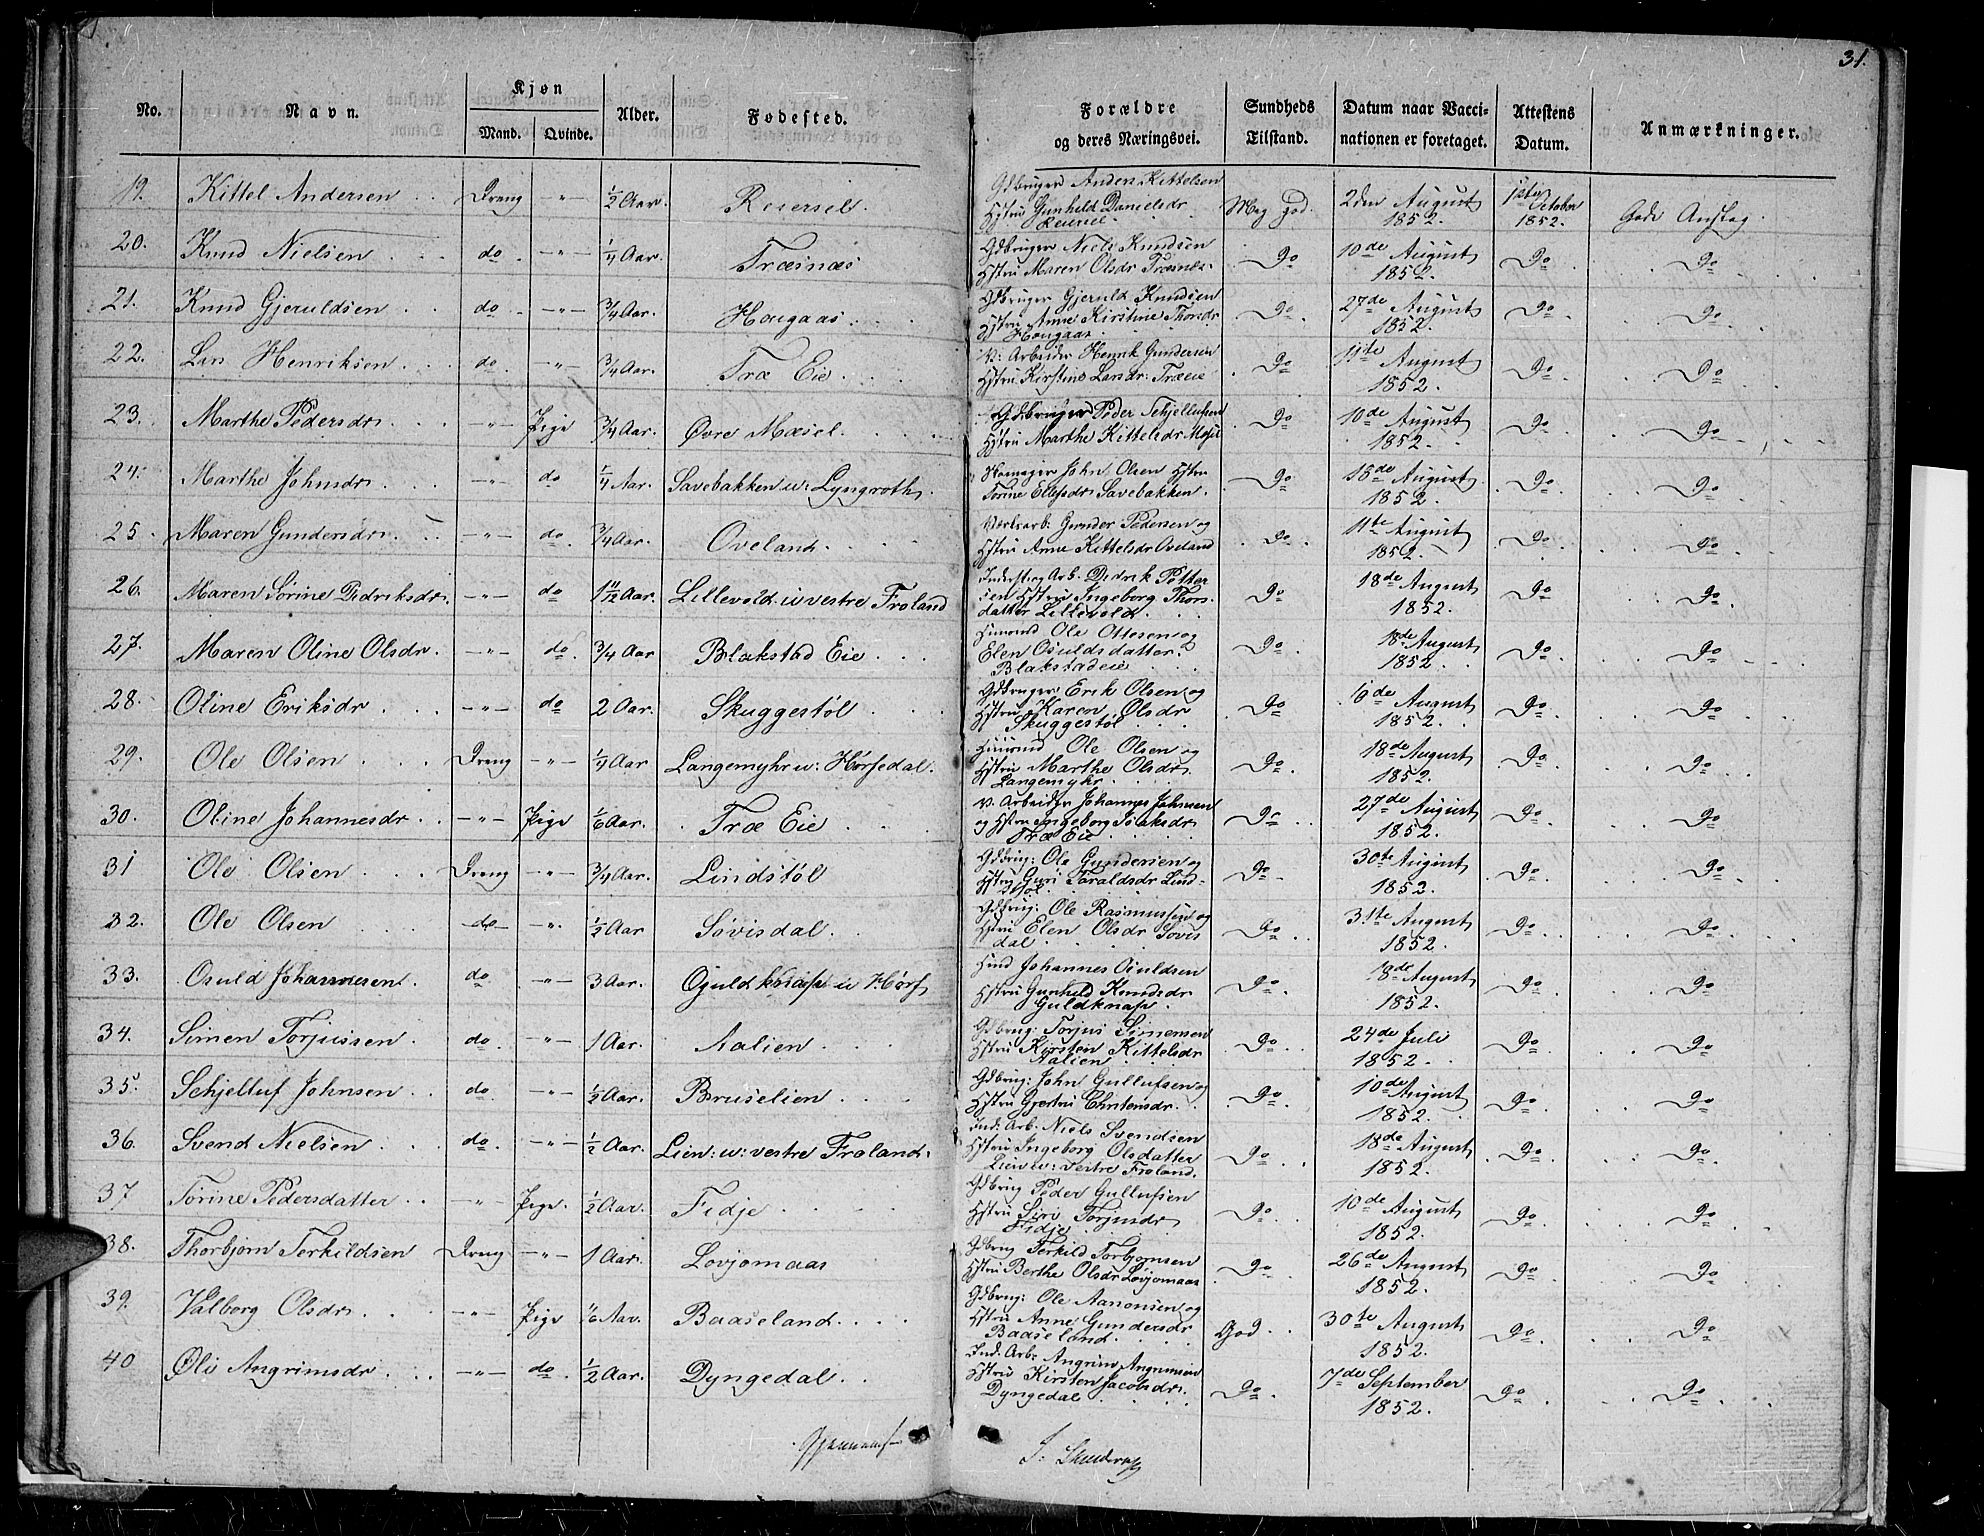 31.
No. Navn. Kjøn Mand. Qvinde. Alder. Fødested. Forældre og deres Næringsvei. Sundheds Tilstand. Datum naar Vaccinationen er foretaget. Attestens Datum. Anmærkninger.
19. Kittel Andersen Dreng -"- 1/2 Aar. Reiersel Gdbruger Anders Kittelsen Hstru Gunhild Danielsdr Reiersel Meg god. 2den August 1852. 1ste October 1852. Gode Anslag
20. Knud Nielsen do -"- 1/4 Aar. Træsnæs Gdbruger Niels Knudsen Hstru Maren Olsdr Træsnes. Do 10de August 1852. Do Do
21. Knud Gjeruldsen do -"- 3/4 Aar. Hougaas Gdbruger Gjeruld Knudsen Hstru Anne Kirstine Thorsdr Hougaas Do 27de August 1852. Do Do
22. Lars Henriksen do -"- 3/4 Aar. Træ Eie V: Arbeider Henrik Gundersen Hstru Kirstine Larsdr: Træeie Do 11te August 1852. Do Do
23. Marthe Pedersdr -"- Pige 3/4 Aar. Øvre Mæsel Gdbruger Peder Schjellufsen Hstru Marthe Kittelsdr Mæsel Do 10de August 1852. Do Do
24. Marthe Johnsdr -"- do 1/4 Aar. Savebakken u: Lyngroth John Olsen Hstru Torine Ellefsdr Savebakken. Do 18de August 1852. Do Do
25. Maren Gundersdr -"- do 3/4 Aar. Oveland Værksarb: Gunder Pedersen og Hstru Anne Kittelsdr Oveland Do 11te August 1852. Do Do
26. Maren Sørine Didriksdr. -"- do 1 11/12 Aar. Lillevold u vestre Froland Inderst og Arb. Didrik Pettersen Hstru Ingeborg Thorsdatter Lillevold Do 18de August 1852. Do Do
27. Maren Oline Olsdr. -"- do. 3/4 Aar Blakstad Eie Husmand Ole Ottesen og Elen Osuldsdatter Blakstadeie Do 18de August 1852. Do Do
28. Oline Eriksdr -"- do 2 Aar. Skuggestøl Gdbruger Erik Olsen og Hstru Karen Olsdr Skuggestøl Do 10de August 1852. Do Do
29. Ole Olsen Dreng -"- 1/4 Aar Langemyhr u: Hørsedal. Husmd Ole Olsen og Hstru Marthe Olsdr Langemyhr Do 18de August 1852. Do Do
30. Oline Johannesdr -"- Pige 1/6 Aar. Træ Eie V. Arbeider Johannes Johnsen og Hstru Ingeborg Isaksdr Træ Eie Do 27de August 1852. Do Do
31 Ole Olsen Dreng -"- 3/4 Aar. Lindstøl Gdbrug: Ole Gundersen og Hstru Guri Taraldsdr Lindstøl Do 30te August 1852. Do Do
32. Ole Olsen do -"- 1/2 Aar Søvisdal Gdbrug: Ole Rasmussen og Hstru Elen Olsdr Søvisdal Do 31te August 1852. Do Do
33. Osuld Johannesen. do -"- 3 Aar. Hmd Johannes Osuldsen Hstru Gunhild Knudsdr Do 18de August 1852. Do Do
34. Simen Torjussen do -"- 1 Aar. Aalien Gdbrug: Torjus Simensen Hstru Kirsten Kittelsdr Aalien Do 24de Juli 1852 Do Do
35. Schjelluf Johnsen do -"- 1/2 Aar. Bruselien Gdbrug: John Gullufsen og Hstru Gjertru Christensdr. Do 10de August 1852. Do Do
36. Svend Nielsen do -"- 1/2 Aar. Lien: u: vestre Froland. Ind. Arb: Niels Svendsen Hstru Ingeborg Olsdatter Lien u: vestre Froland. Do 18de August 1852. Do Do
37 Torine Pedersdatter -"- Pige. 1/2 Aar. Fidje Gdbrug Peder Gullufsen Hstru Siri Torjusdr Fidje Do 10de August 1852. Do Do
38. Thorbjørn Terkildsen Dreng -"- 1 Aar. Løvjomaas Gdbrug Terkild Torbjørnsen Hstru Berthe Olsdr Løvjomaas Do 26de August 1852. Do Do
39. Valborg Olsdr -"- Pige 1/6 Aar. Baaseland Gdbrug: Ole Aanonsen og Hstru Anne Gundersdr Baaseland God 30te August 1852. Do Do
40 Øli Angrimsdr -"- do 1/2 Aar. Dyngedal Ind: Arb: Angrim Angrimsen Hstru Kirsten Jacobsdr. Dyngedal Do 7de September 1852. Do Do